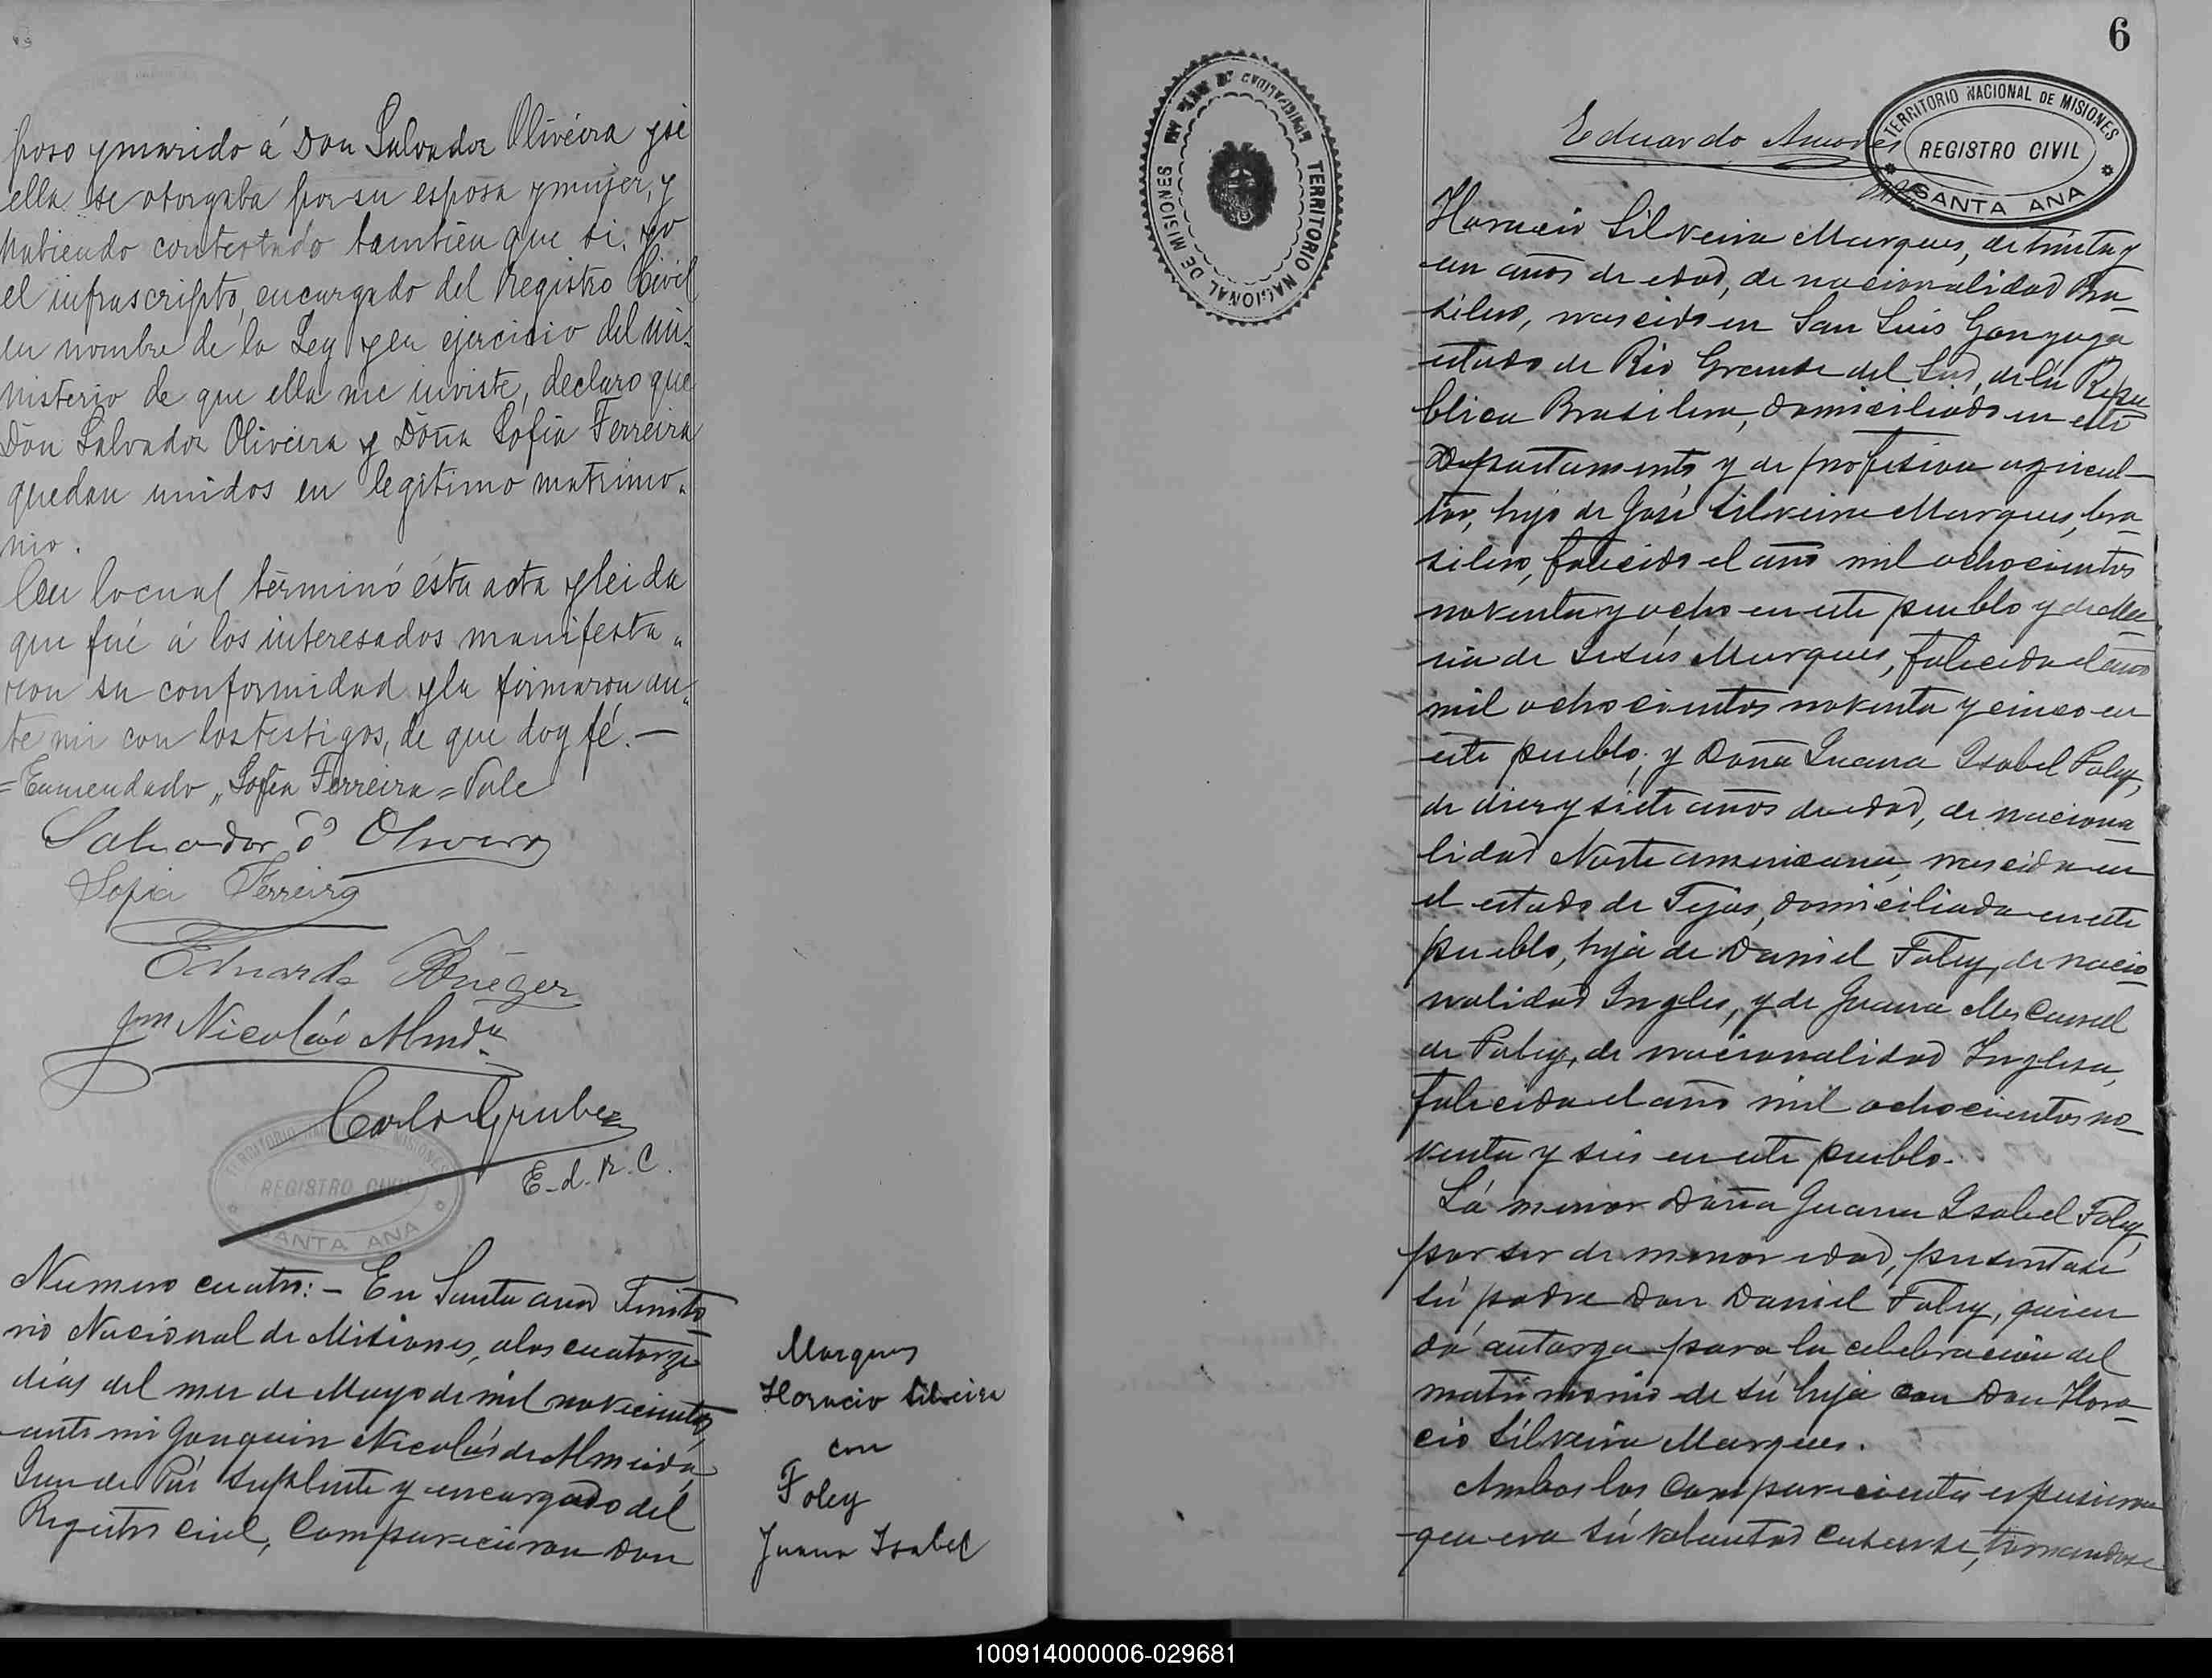 poso y marido á Don Salvador Oliveira y si
ella se otorgaba por su esposa y mujer, y
habiendo contestado tambien que si. yo
el infrascripto, encargado del Registro Civil
en nombre de la Ley y en ejercicio del mi-
nisterio de que ella me inviste, declaro que
Don Salvador Oliveira y Doña Sofia Ferreira
quedan unidos en legitimo matrimo-
nio.
Con lo cual terminó ésta acta y leida
que fué á los interesados manifesta-
ron su conformidad y la firmaron an-
te mi con los testigos, de que doy fé.—
=Enmendado „Sofia Ferreira = Vale
Salvador Oliveira
Sofia Ferreira
Eduardo
Jm Nicoláo Almda
Carlos Gruber
E. d. R. C.
TERRITORIO NACIONAL DE MISIONES
REGISTRO CIVIL
SANTA ANA
Numero cuatro: – En Santa ana Territo
rio Nacional de Misiones, a los cuatorze
dias del mes de Mayo de mil novecientos,
ante mi Joaquin Nicolás de Almeida,
Juez de Paz Suplente y encargado del
Registro Civil, Comparecieron Don
Marques
Horacio Silveira
con
Foley
Juana Isabel
6
TERRITORIO NACIONAL DE MISIONES
TERRITORIO NACIONAL DE MISIONES
REGISTRO CIVIL
SANTA ANA
Eduardo
Horacio Silveira Marques, de trinta y
un años de edad, de nacionalidad Bra-
silero, nascido en San Luis Gonzaga
estado de Rio Grande del Sud, de la Repu
blica Brasilera, domiciliado en este
Departamento, y de profesion agricul-
tor, hijo de José Silveira Marques, bra
silero, falecido el año mil ochocientos
noventa y ocho en este pueblo y de Ma
ria de Jesús Marques, falecida el año
mil ochocientos noventa y cinco en
este pueblo; y Doña Juana Isabel Foley,
de diez y siete años de edad, de naciona
lidad Norte americana, nascida en
el estado de Tejas, domiciliada en este
pueblo, hija de Daniel Foley, de nacio
nalidad Ingles, y de Juana
de Foley, de nacionalidad Inglesa,
falecida el año mil ochocientos no-
venta y seis en este pueblo.
Lá menor Doña Juana Isabel Foley,
por ser de menor edad, presentase
sú padre Don Daniel Foley, quien
dá autorga para la celebracion del
matrimonio de sú hija con Don Hora-
cio Silveira Marques.
Ambos los Comparecientes espusieron
que era sú voluntad Casarse, tomandose